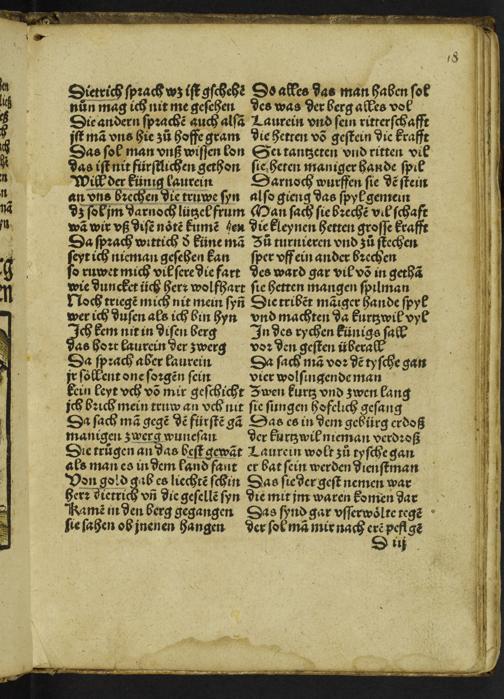 18
Dietrich sprach wz ist gschehē
nūn mag ich nit me gesehen
Die andern sprachē auch alsā
jst mā vns hie zū hoffe gram
Das sol man vnß wissen lon
das ist nit fürstlichen gethon
Will der künig laurein
an vns brechen die truwe syn
dz sol jm darnoch lützel frum
wā wir vß disē nötē kumē hen
Da sprach wittich ō küne mā
seyt ich nieman gesehen kan
so ruwet mich vil sere die fart
wie duncket üch herz wolfhart
Noch triegē mich nit mein syñ
wer ich dusen als ich bin hyn
Jch kem nit in disen berg
das hort laurein der zwerg
Da sprach aber laurein
jr söllent one sorgēn sein
kein leyt vch vō mir geschicht
jch brich mein truw an vch nit
Da sach mā gegē dē fürstē gā
manigen zwerg wunesan
Die trügen an das best gewāt
als man es in dem land fant
Von gold gab es liechtē schin
herz dietrich vñ die gesellē syn
Kamē in den berg gegangen
sie sahen ob jnenen hangen
Ds alles das man haben sol
des was der berg alles vol
Laurein vnd sein ritterschafft
die hetten vō gestein die krafft
Sei tantzeten vnd ritten vil
sie hetten maniger hande spil
Darnoch wurffen sie dē stein
also gieng das spyl gemein
Man sach sie brechē vil schaft
die kleynen hetten grosse krafft
Zū turnieren vnd zū stechen
sper vff ein ander brechen
des ward gar vil vō in gethā
sie hetten mangen spilman
Die tribēt māiger hande spyl
vnd machten da kurtzwil vyl
Jn des rychen künigs sall
vor den gesten überall
Da sach mā vor dē tysche gan
vier wolsingende man
Zwen kurtz vnd zwen lang
sie sungen hofelich gesang
Das es in dem gebürg erdoß
der kurtzwil nieman verdroß
Laurein wolt zū tysche gan
er bat sein werden dienstman
Das sie der gest nemen war
die mit jm waren komen dar
Das synd gar vsserwölte tegē
der sol mā mir nach erē peflgē
D iij